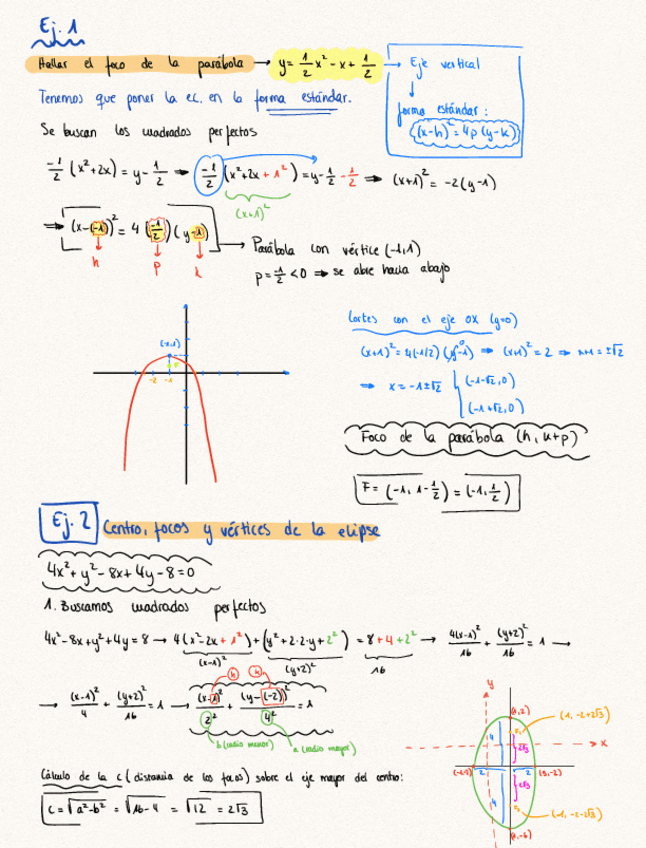 Ej. 1
Hallar el foco de la parábola → y = 1/2 x² - x + 1/2 → Eje vertical
↓
forma estándar:
(x-h)² = 4p (y-k)
Tenemos que poner la ec. en la forma estándar.
Se buscan los cuadrados perfectos
-1/2 (x²+2x) = y - 1/2 ⇒ -1/2 (x²+2x+1²) = y - 1/2 - 1/2 ⇒ (x+1)² = -2(y-1)
(x+1)²
⇒ [(x-(-1))² = 4 (-1/2) (y-1)] → Parábola con vértice (-1,1)
h p k
p = -1/2 < 0 ⇒ se abre hacia abajo
Cortes con el eje OX (y=0)
(x+1)² = 4(-1/2) (y-1) ⇒ (x+1)² = 2 ⇒ x+1 = ±√2
0
⇒ x = -1±√2 { (-1-√2, 0)
(-1+√2, 0)
F
-2 -1
Foco de la parábola (h, k+p)
F = (-1, 1 - 1/2) = (-1, 1/2)
Ej. 2 Centro, focos y vértices de la elipse
4x² + y² - 8x + 4y - 8 = 0
1. Buscamos cuadrados perfectos
4x² - 8x + y² + 4y = 8 → 4(x² - 2x + 1²) + (y² + 2·2·y + 2²) = 8 + 4 + 2² → 4(x-1)²/16 + (y+2)²/16 = 1 →
(x-1)² (y+2)² 16
→ (x-1)²/4 + (y+2)²/16 = 1 → (x-1)²/2² + (y-(-2))²/4² = 1
h k
b (radio menor) a (radio mayor)
Cálculo de la c (distancia de los focos) sobre el eje mayor del centro:
c = √a²-b² = √16-4 = √12 = 2√3
y
(1,2)
(1, -2+2√3)
4 2√3
x
(-1,-2) 2 2 (3,-2)
4 2√3
(-1, -2-2√3)
(1,-6)